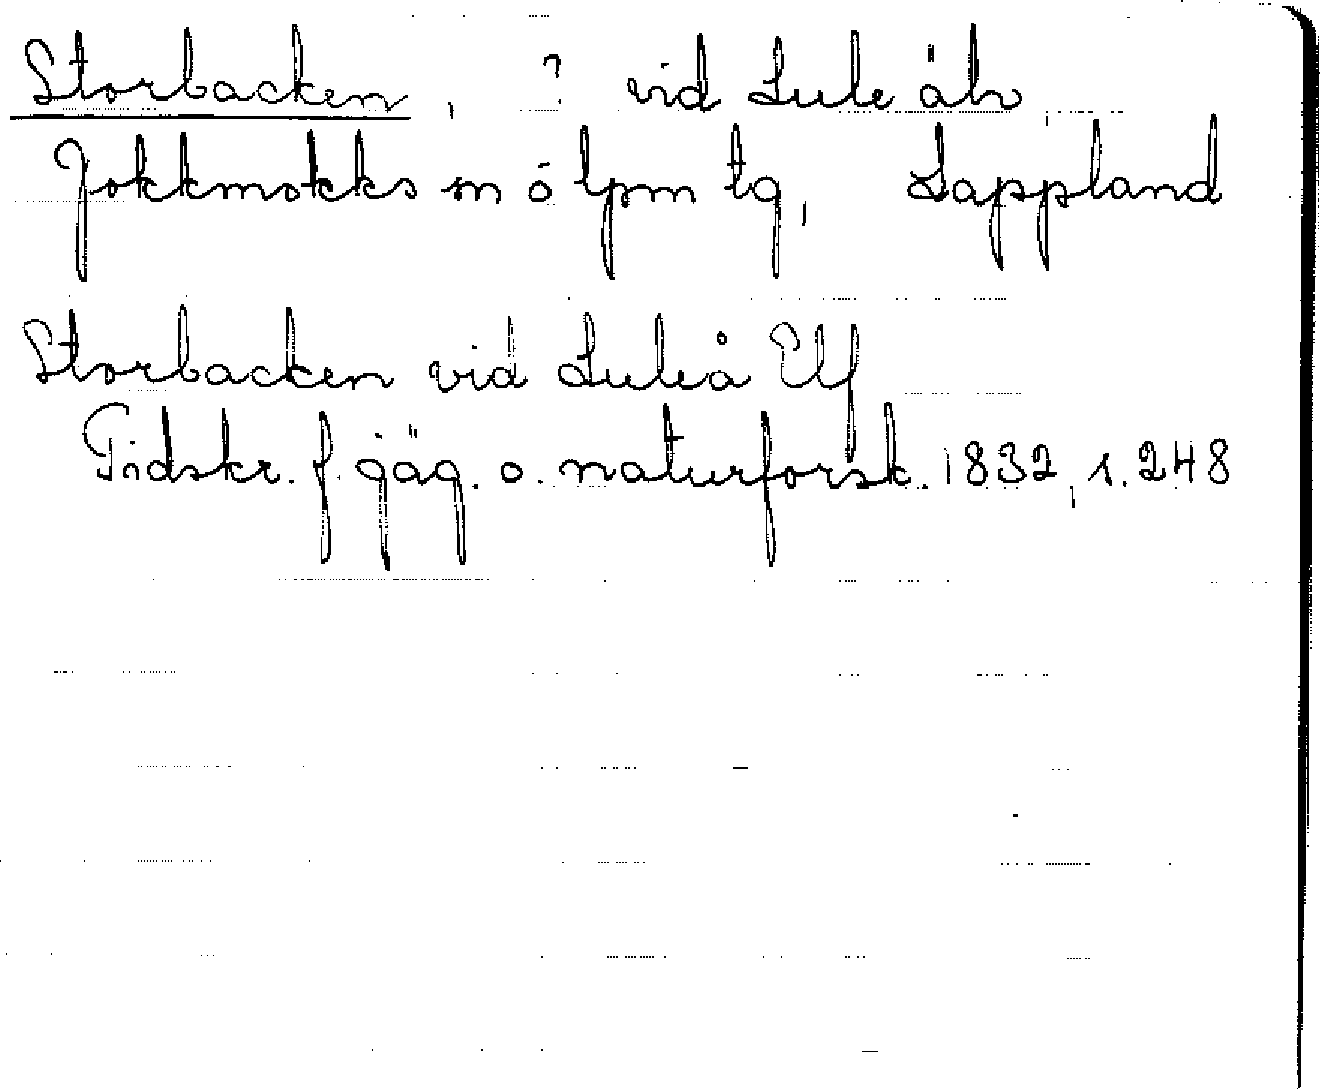 Storbacken, ? vid Lule älv
Jokkmokks sn o lpm tg, Lappland
Storbacken vid Luleå Elf
Tidskr. f. jäg. o. naturforsk. 1832, s. 248